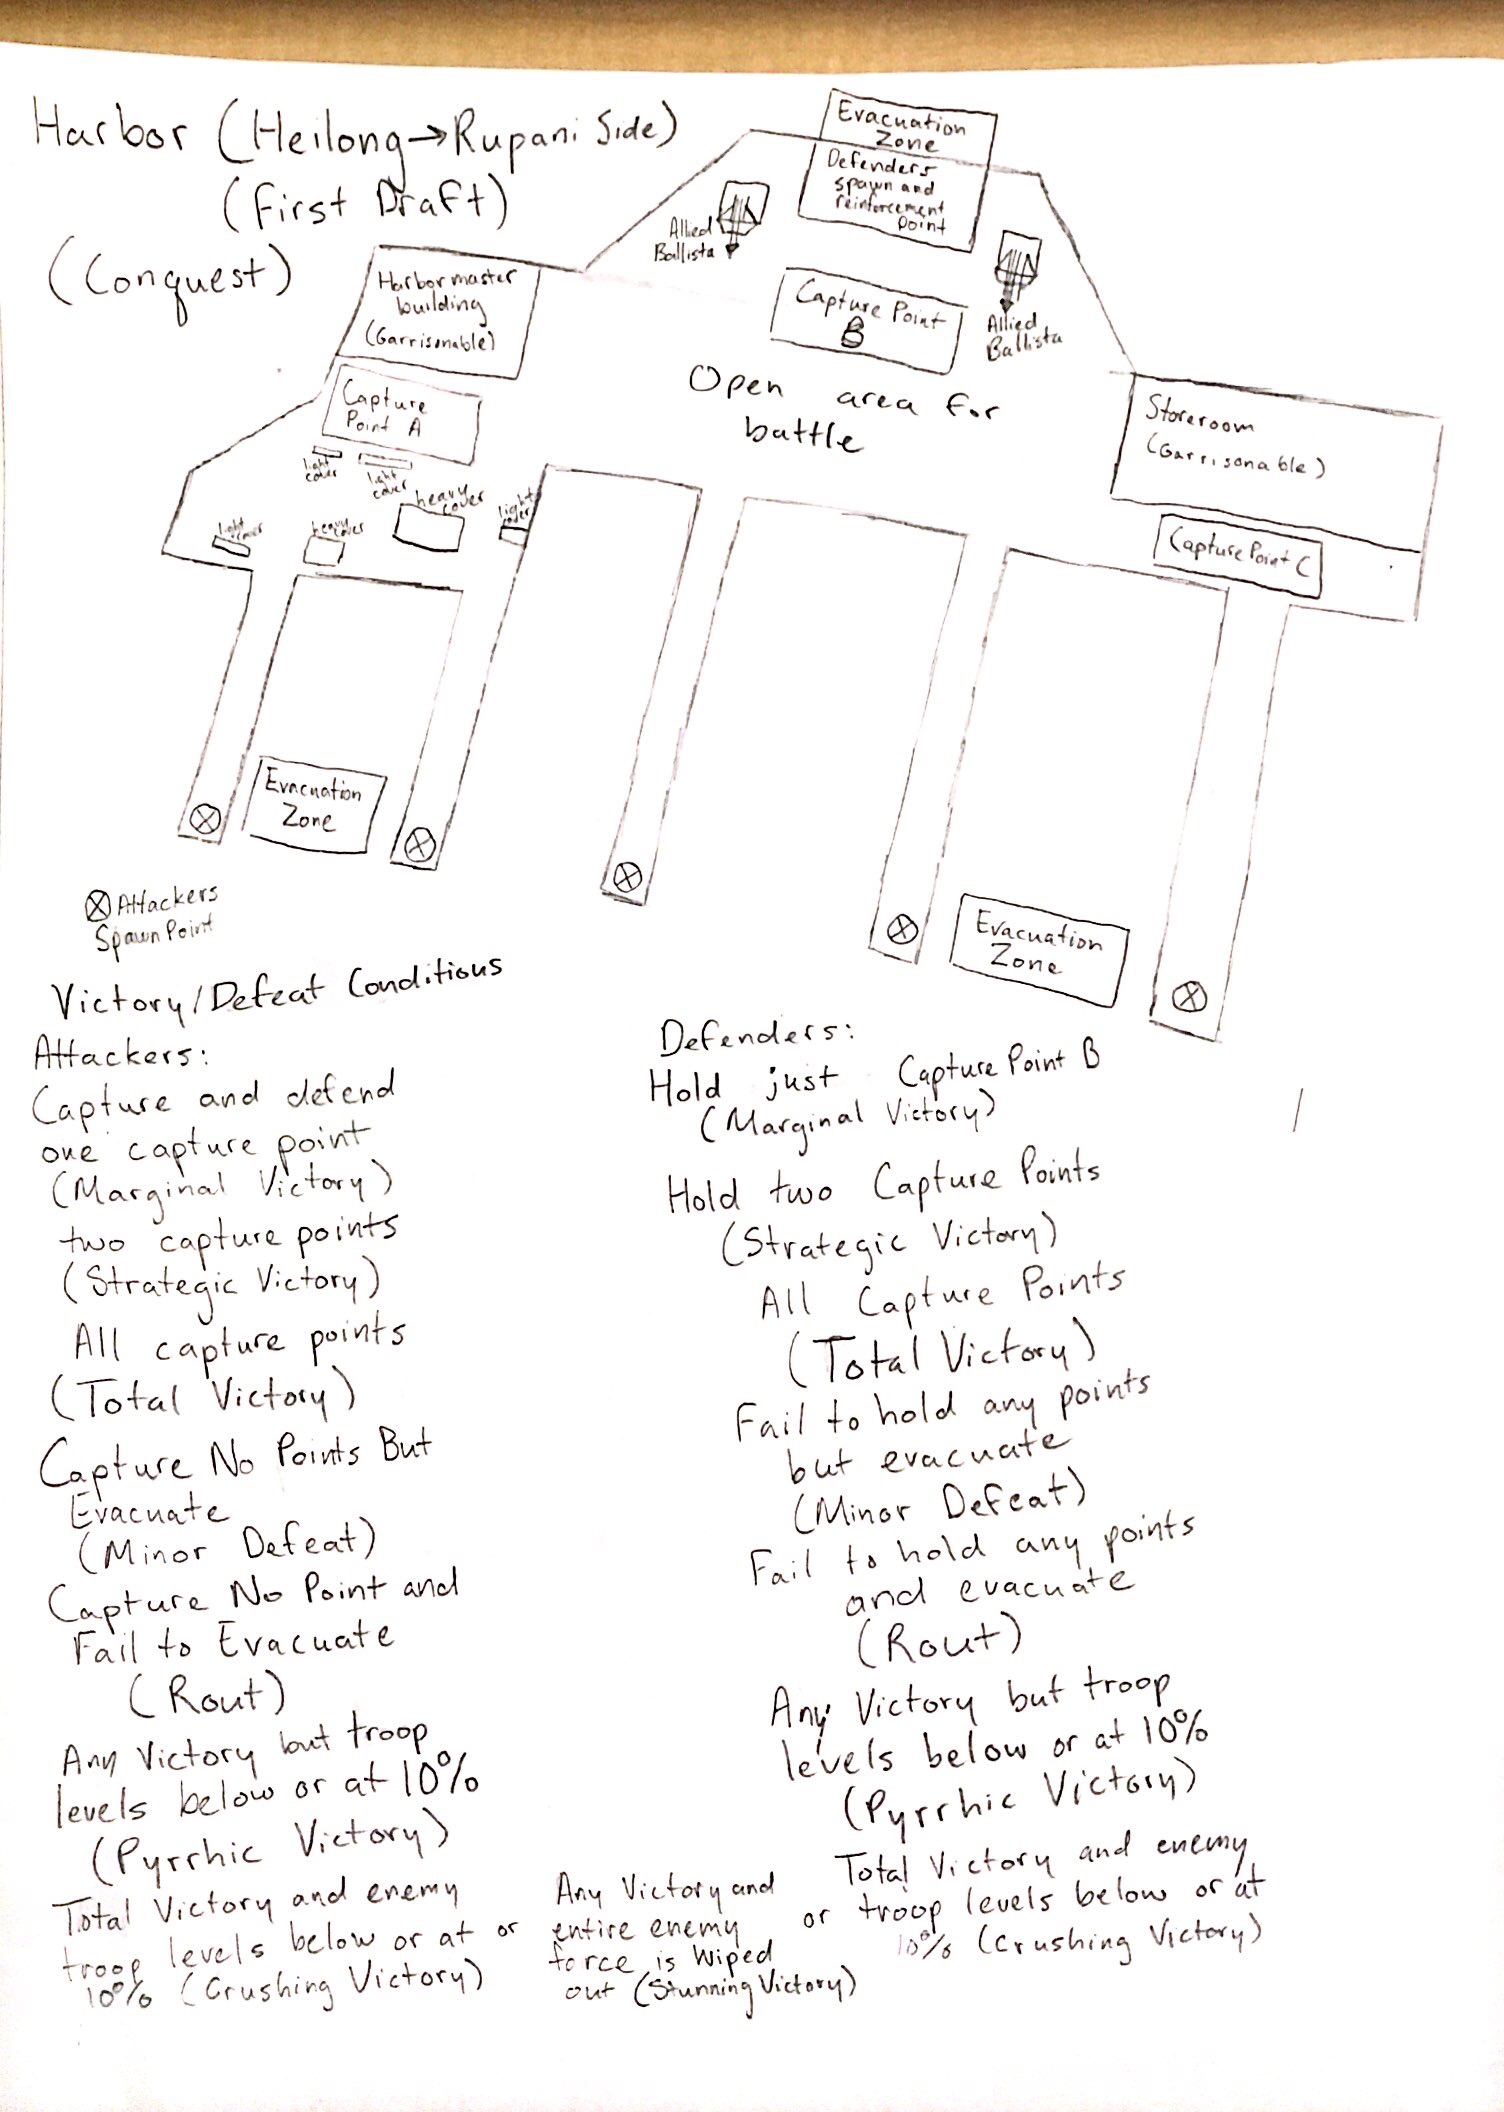 Harbor (Heilong→Rupani Side)
(First Draft)
(Conquest)
Evacuation
Zone
Defenders
spawn and
reinforcement
point
Allied
Ballista
Allied
Ballista
Harbor master
building
(Garrisonable)
Capture Point
B
Open area for
battle
Capture
Point A
Storeroom
(Garrisonable)
Capture Point C
light
cover
light
cover
heavy
cover
light
cover
light
cover
heavy
cover
Evacuation
Zone
Evacuation
Zone
Attackers
Spawn Point
Victory/Defeat Conditions
Attackers:
Capture and defend
one capture point
(Marginal Victory)
two capture points
(Strategic Victory)
All capture points
(Total Victory)
Capture No Points But
Evacuate
(Minor Defeat)
Capture No Point and
Fail to Evacuate
(Rout)
Any Victory but troop
levels below or at 10%
(Pyrrhic Victory)
Total Victory and enemy
troop levels below or at
10% (Crushing Victory)
or
Any Victory and
entire enemy
force is Wiped
out (Stunning Victory)
or
Defenders:
Hold just Capture Point B
(Marginal Victory)
Hold two Capture Points
(Strategic Victory)
All Capture Points
(Total Victory)
Fail to hold any points
but evacuate
(Minor Defeat)
Fail to hold any points
and evacuate
(Rout)
Any Victory but troop
levels below or at 10%
(Pyrrhic Victory)
Total Victory and enemy
troop levels below or at
10% (Crushing Victory)